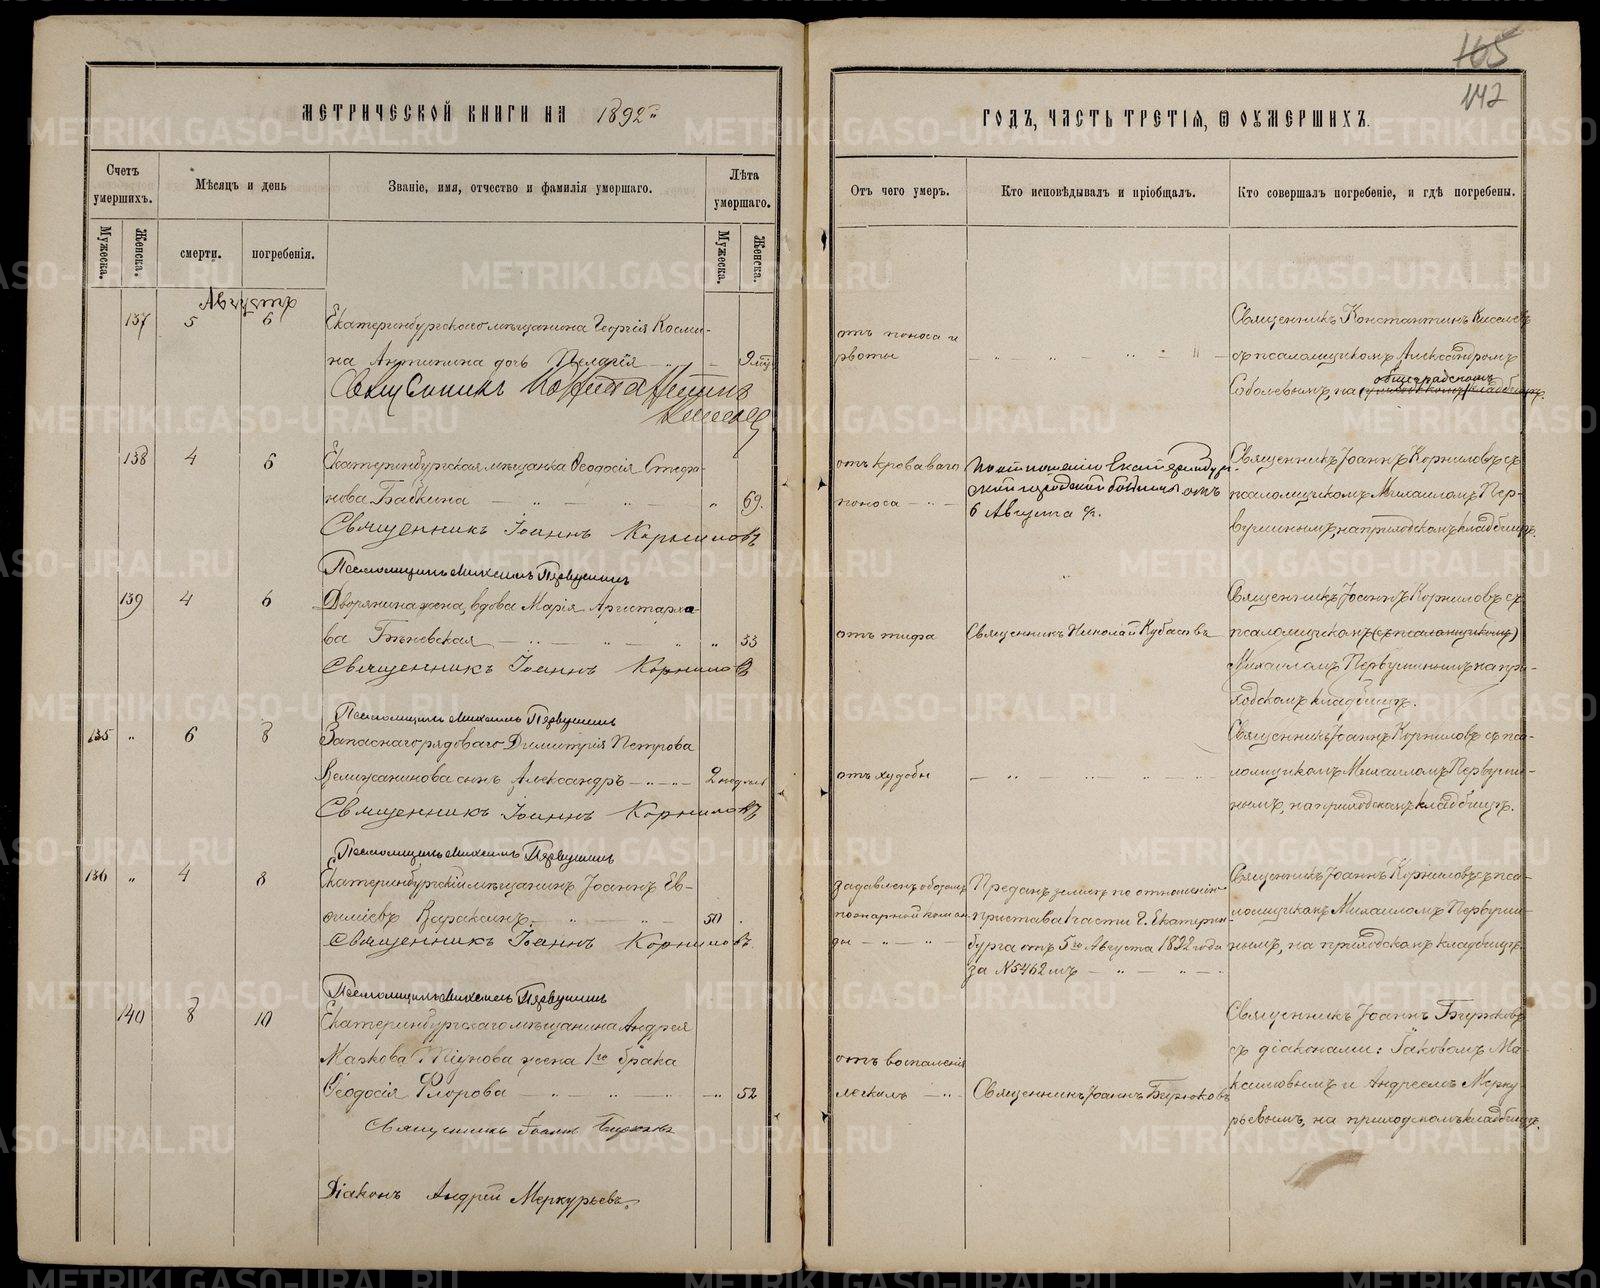 165
142
МЕТРИЧЕСКОЙ КНИГИ НА 1892й
ГОДЪ, ЧАСТЬ ТРЕТІЯ, Ѿ ОУМЕРШИХЪ.
Счетъ умершихъ.
Мѣсяцъ и день
Званіе, имя, отчество и фамилія умершаго.
Лѣта умершаго.
Мужеска.
Женска.
смерти.
погребенія.
Мужеска.
Женска.
Отъ чего умеръ.
Кто исповѣдывалъ и пріобщалъ.
Кто совершалъ погребеніе, и гдѣ погребены.
Августъ
137 5 6 Екатеринбургскаго мѣщанина Георгія Косми-
на Антипина дочь Пелагія
Священникъ Константинъ
отъ поноса и
рвоты
Священникъ Константинъ Киселевъ
съ псаломщикомъ Александромъ
Соболевымъ, на общеградскомъ кладбищѣ.
138 4 6 Екатеринбургская мѣщанка Ѳеодосія Стефа-
нова Бабкина 69.
Священникъ Іоаннъ Корниловъ
Псаломщикъ Михаилъ Первушинъ
отъ кроваваго
поноса
По отношенію Екатеринбург-
ской городской больницы отъ
6 Августа
Священникъ Іоаннъ Корниловъ съ
псаломщикомъ Михаиломъ Пер-
вушинымъ, на приходскомъ кладбищѣ.
139 4 6 Дворянина жена, вдова Марія Аристархо-
ва 53
Священникъ Іоаннъ Корниловъ
Псаломщикъ Михаилъ Первушинъ
отъ тифа
Священникъ Николай Кубасовъ
Священникъ Іоаннъ Корниловъ съ
псаломщикомъ (съ псаломщикомъ)
Михаиломъ Первушинымъ на при-
ходскомъ кладбищѣ.
135 " 6 8 Запаснаго рядоваго Димитрія Петрова
сынъ Александръ 2 недѣли
Священникъ Іоаннъ Корниловъ
Псаломщикъ Михаилъ Первушинъ
отъ худобы
Священникъ Іоаннъ Корниловъ съ пса-
ломщикомъ Михаиломъ Первуши-
нымъ, на приходскомъ кладбищѣ.
136 " 4 8 Екатеринбургскій мѣщанинъ Іоаннъ Ев-
ѳиміевъ Вараксинъ 50
Священникъ Іоаннъ Корниловъ
Псаломщикъ Михаилъ Первушинъ
задавленъ обозомъ
пожарной коман-
ды
Преданъ землѣ по отношенію
пристава 1 части г. Екатерин-
бурга отъ 5го Августа 1892 года
за №5462мъ
Священникъ Іоаннъ Корниловъ съ пса-
ломщикомъ Михаиломъ Первуши-
нымъ, на приходскомъ кладбищѣ.
140 8 10 Екатеринбургскаго мѣщанина Андрея
Маркова Тіунова жена 1го брака
Ѳеодосія Флорова 52
Священникъ Іоаннъ Бирюковъ
Діаконъ Андрей Меркурьевъ.
отъ воспаленія
легкихъ
Священникъ Іоаннъ Бирюковъ
Священникъ Іоаннъ Бирюковъ
съ діаконами: Іаковомъ Ма-
ксимовымъ и Андреемъ Мерку-
рьевымъ, на приходскомъ кладбищѣ.